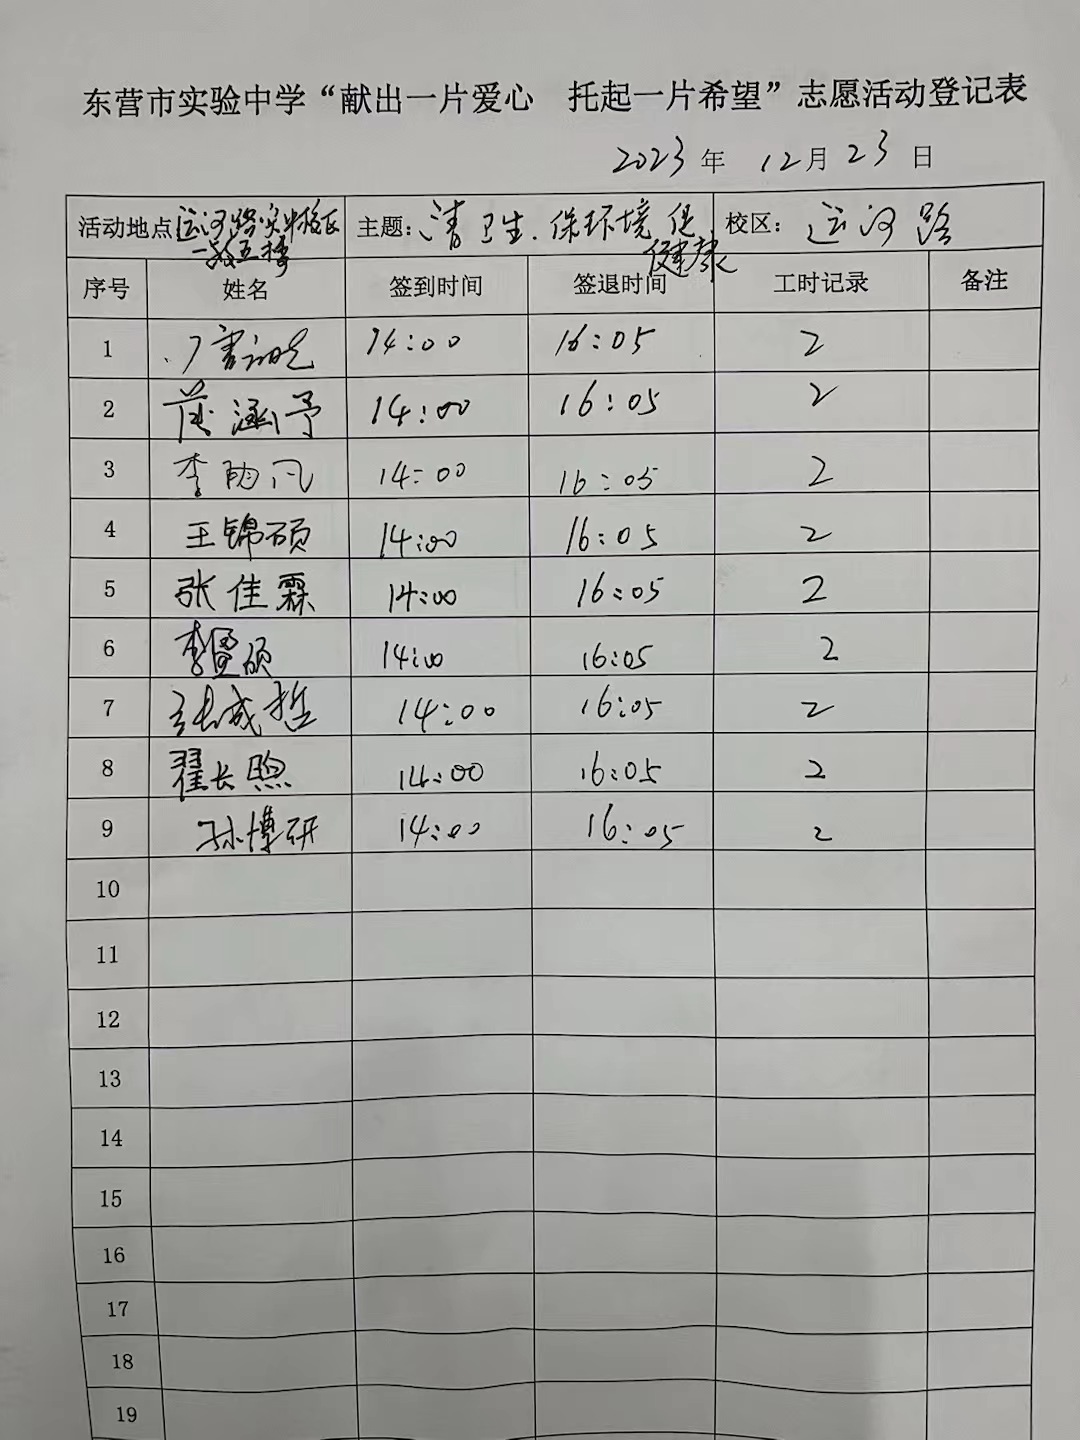 东营市实验中学“献出一片爱心 托起一片希望”志愿活动登记表
2023年 12月23日
活动地点 运河路实中校区 主题：清卫生.保环境 促健康 校区：运河路
序号 姓名 签到时间 签退时间 工时记录 备注
1 14:00 16:05 2
2 涵予 14:00 16:05 2
3 李昀凡 14:00 16:05 2
4 王锦硕 14:00 16:05 2
5 张佳霖 14:00 16:05 2
6 李 硕 14:00 16:05 2
7 张威哲 14:00 16:05 2
8 翟长煦 14:00 16:05 2
9 孙博研 14:00 16:05 2
10
11
12
13
14
15
16
17
18
19